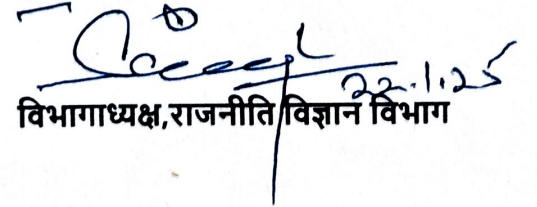 22.1.25
विभागाध्यक्ष,राजनीति विज्ञान विभाग